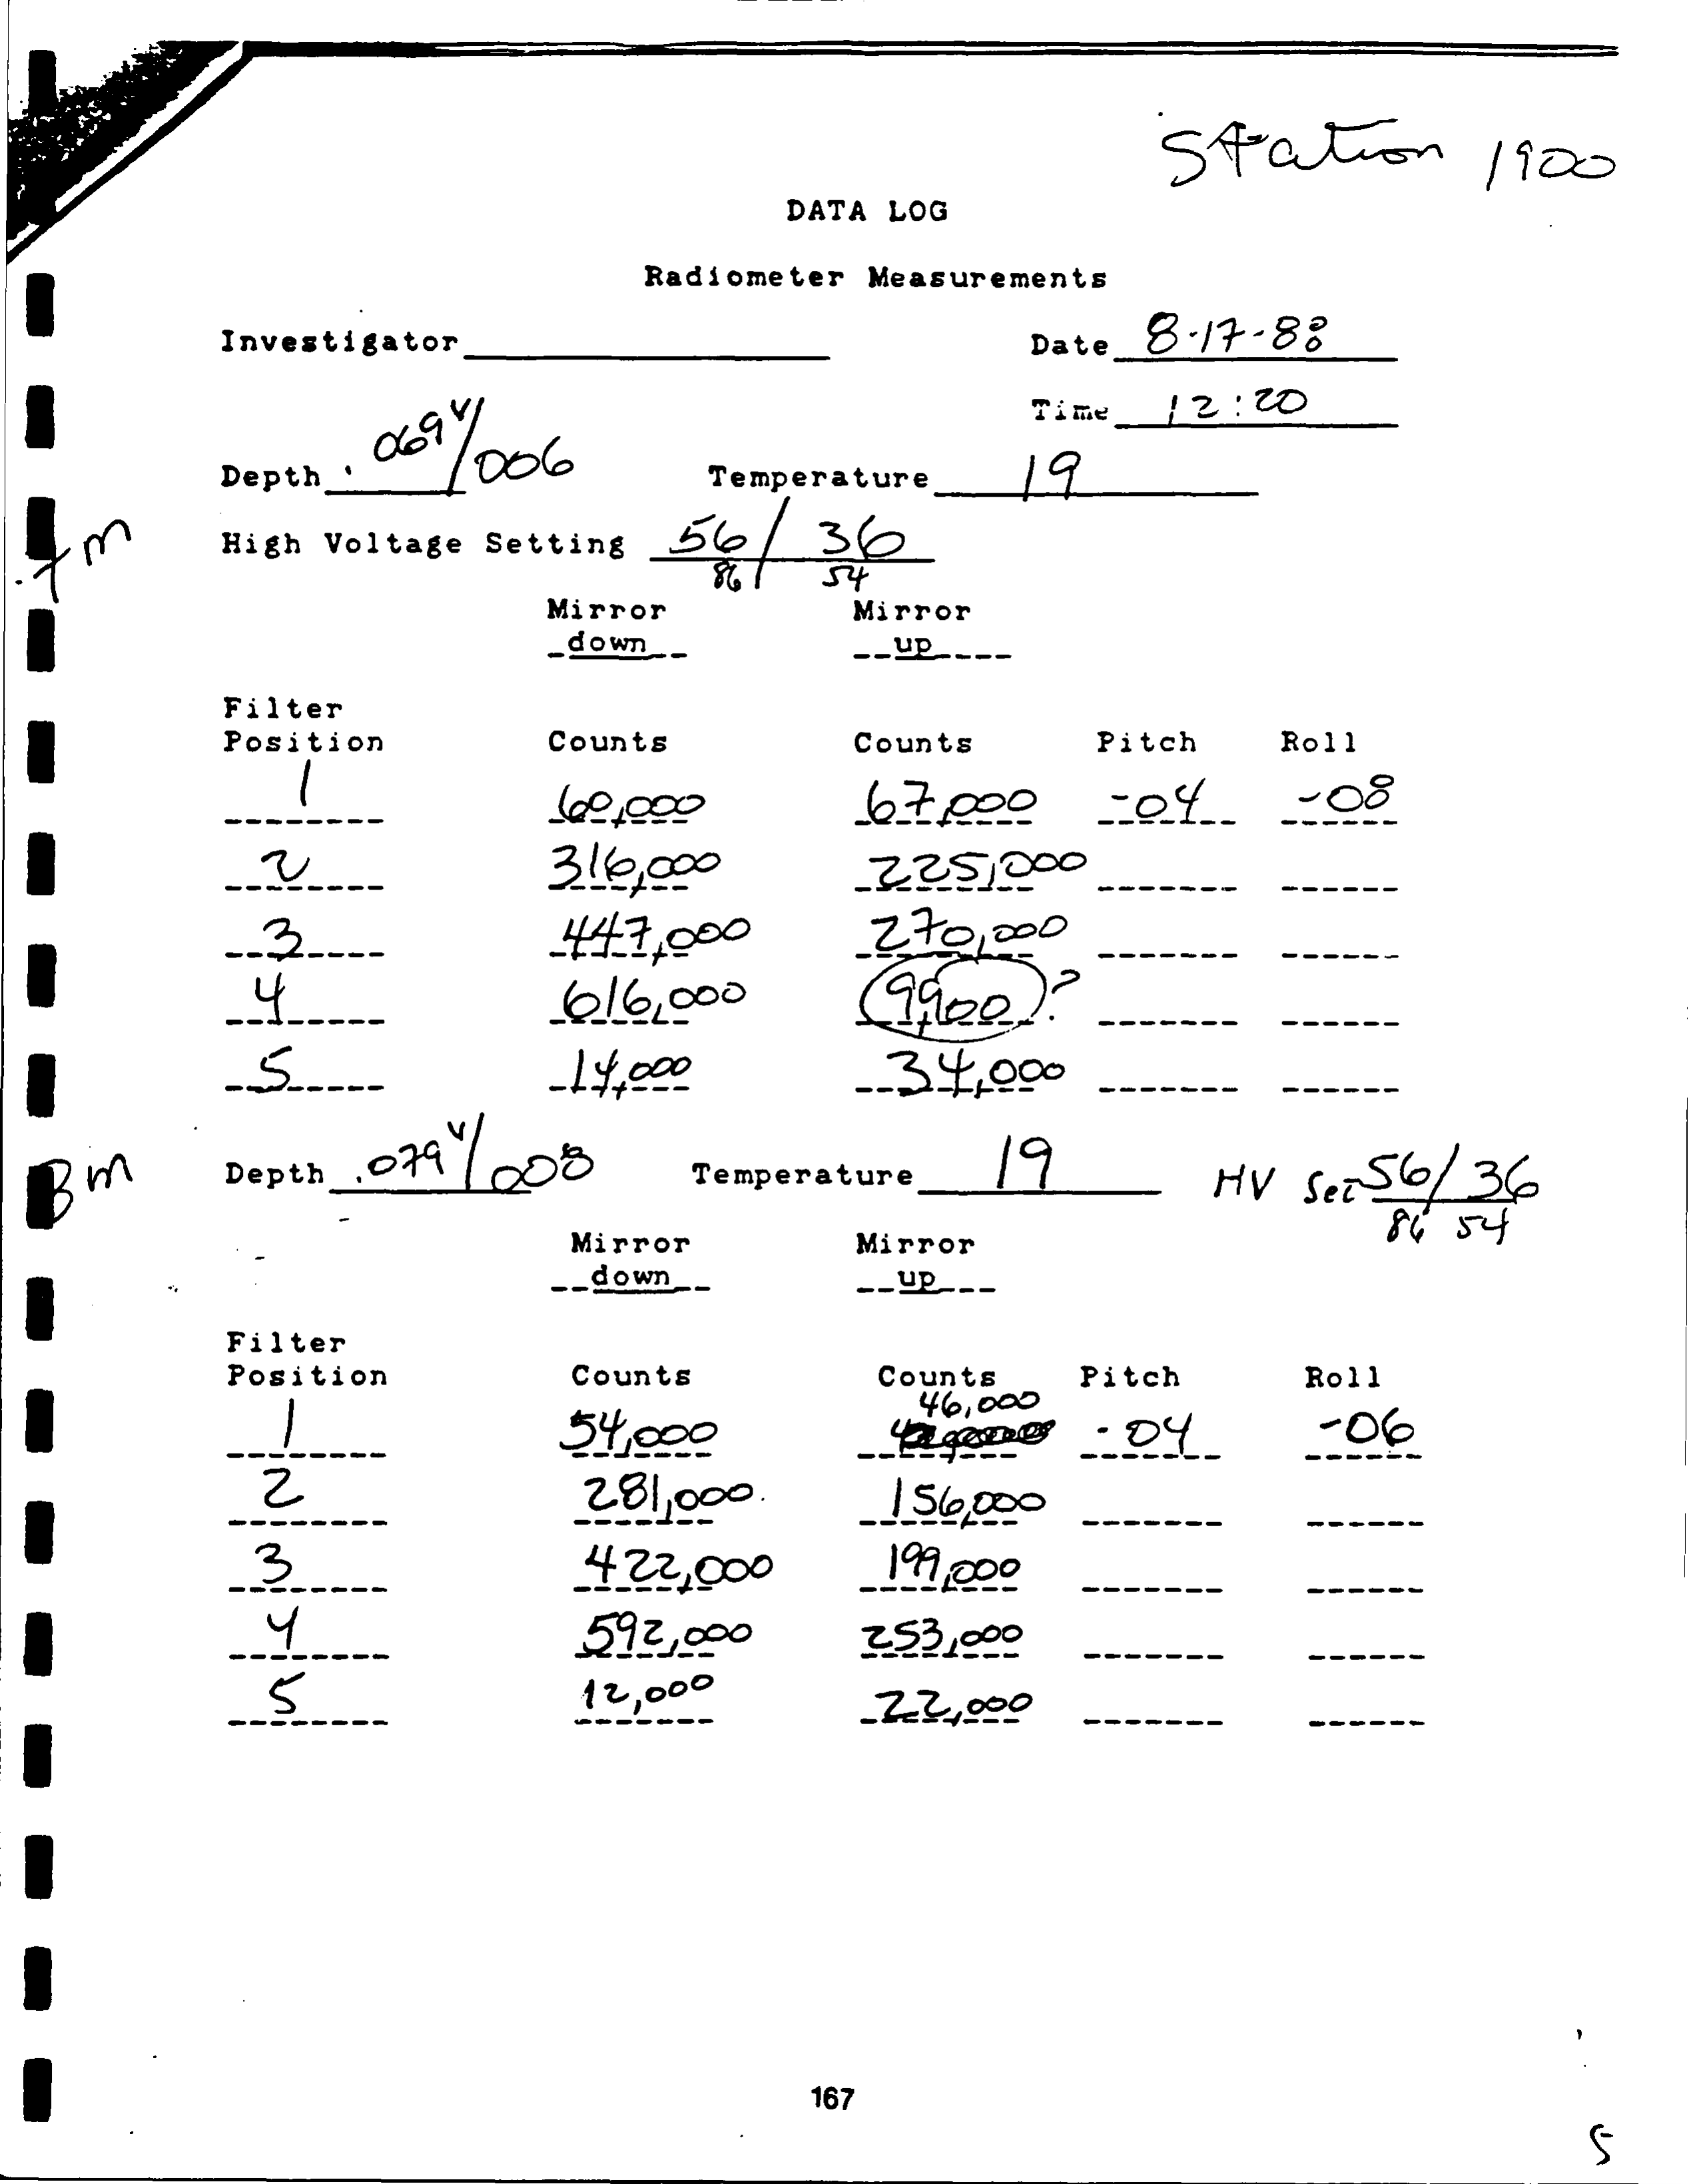 Station 1900
DATA LOG
Radiometer Measurements
Investigator
Date 8-17-88
Time 12:20
Depth .069V/006 Temperature 19
High Voltage Setting 56/36
86 54
Mirror Mirror
down up
Filter
Position Counts Counts Pitch Roll
1 60,000 67,000 -04 -08
2 316,000 225,000
3 447,000 270,000
4 616,000 9,900?
5 14,000 34,000
m Depth .079V/008 Temperature 19 HV Set 56/36
86 54
Mirror Mirror
down up
Filter
Position Counts Counts Pitch Roll
46,000
1 54,000 -04 -06
2 281,000 156,000
3 422,000 199,000
4 592,000 253,000
5 12,000 22,000
167
5